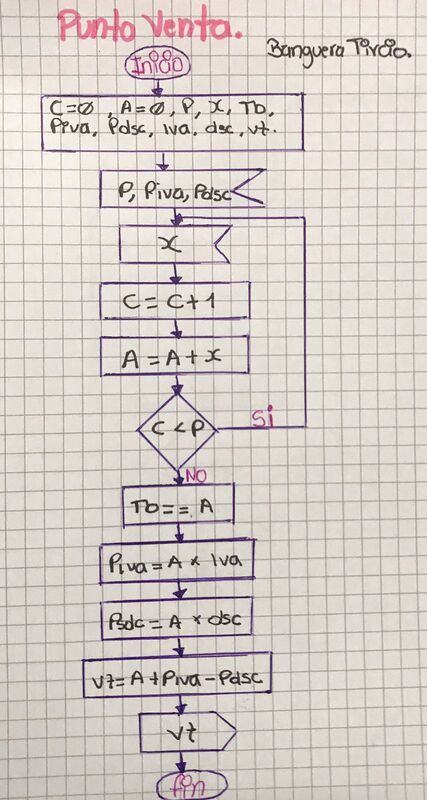 Punto Venta.
Banguera Tirado.
Inicio
C=0, A=0, P, X, Tb,
Piva, Pdsc, iva, dsc, vt.
P, Piva, Pdsc
X
C = C+1
A = A + x
C < P
Si
NO
Tb == A
Piva = A x Iva
Psdc = A x dsc
Vt = A + Piva - Pdsc
Vt
fin